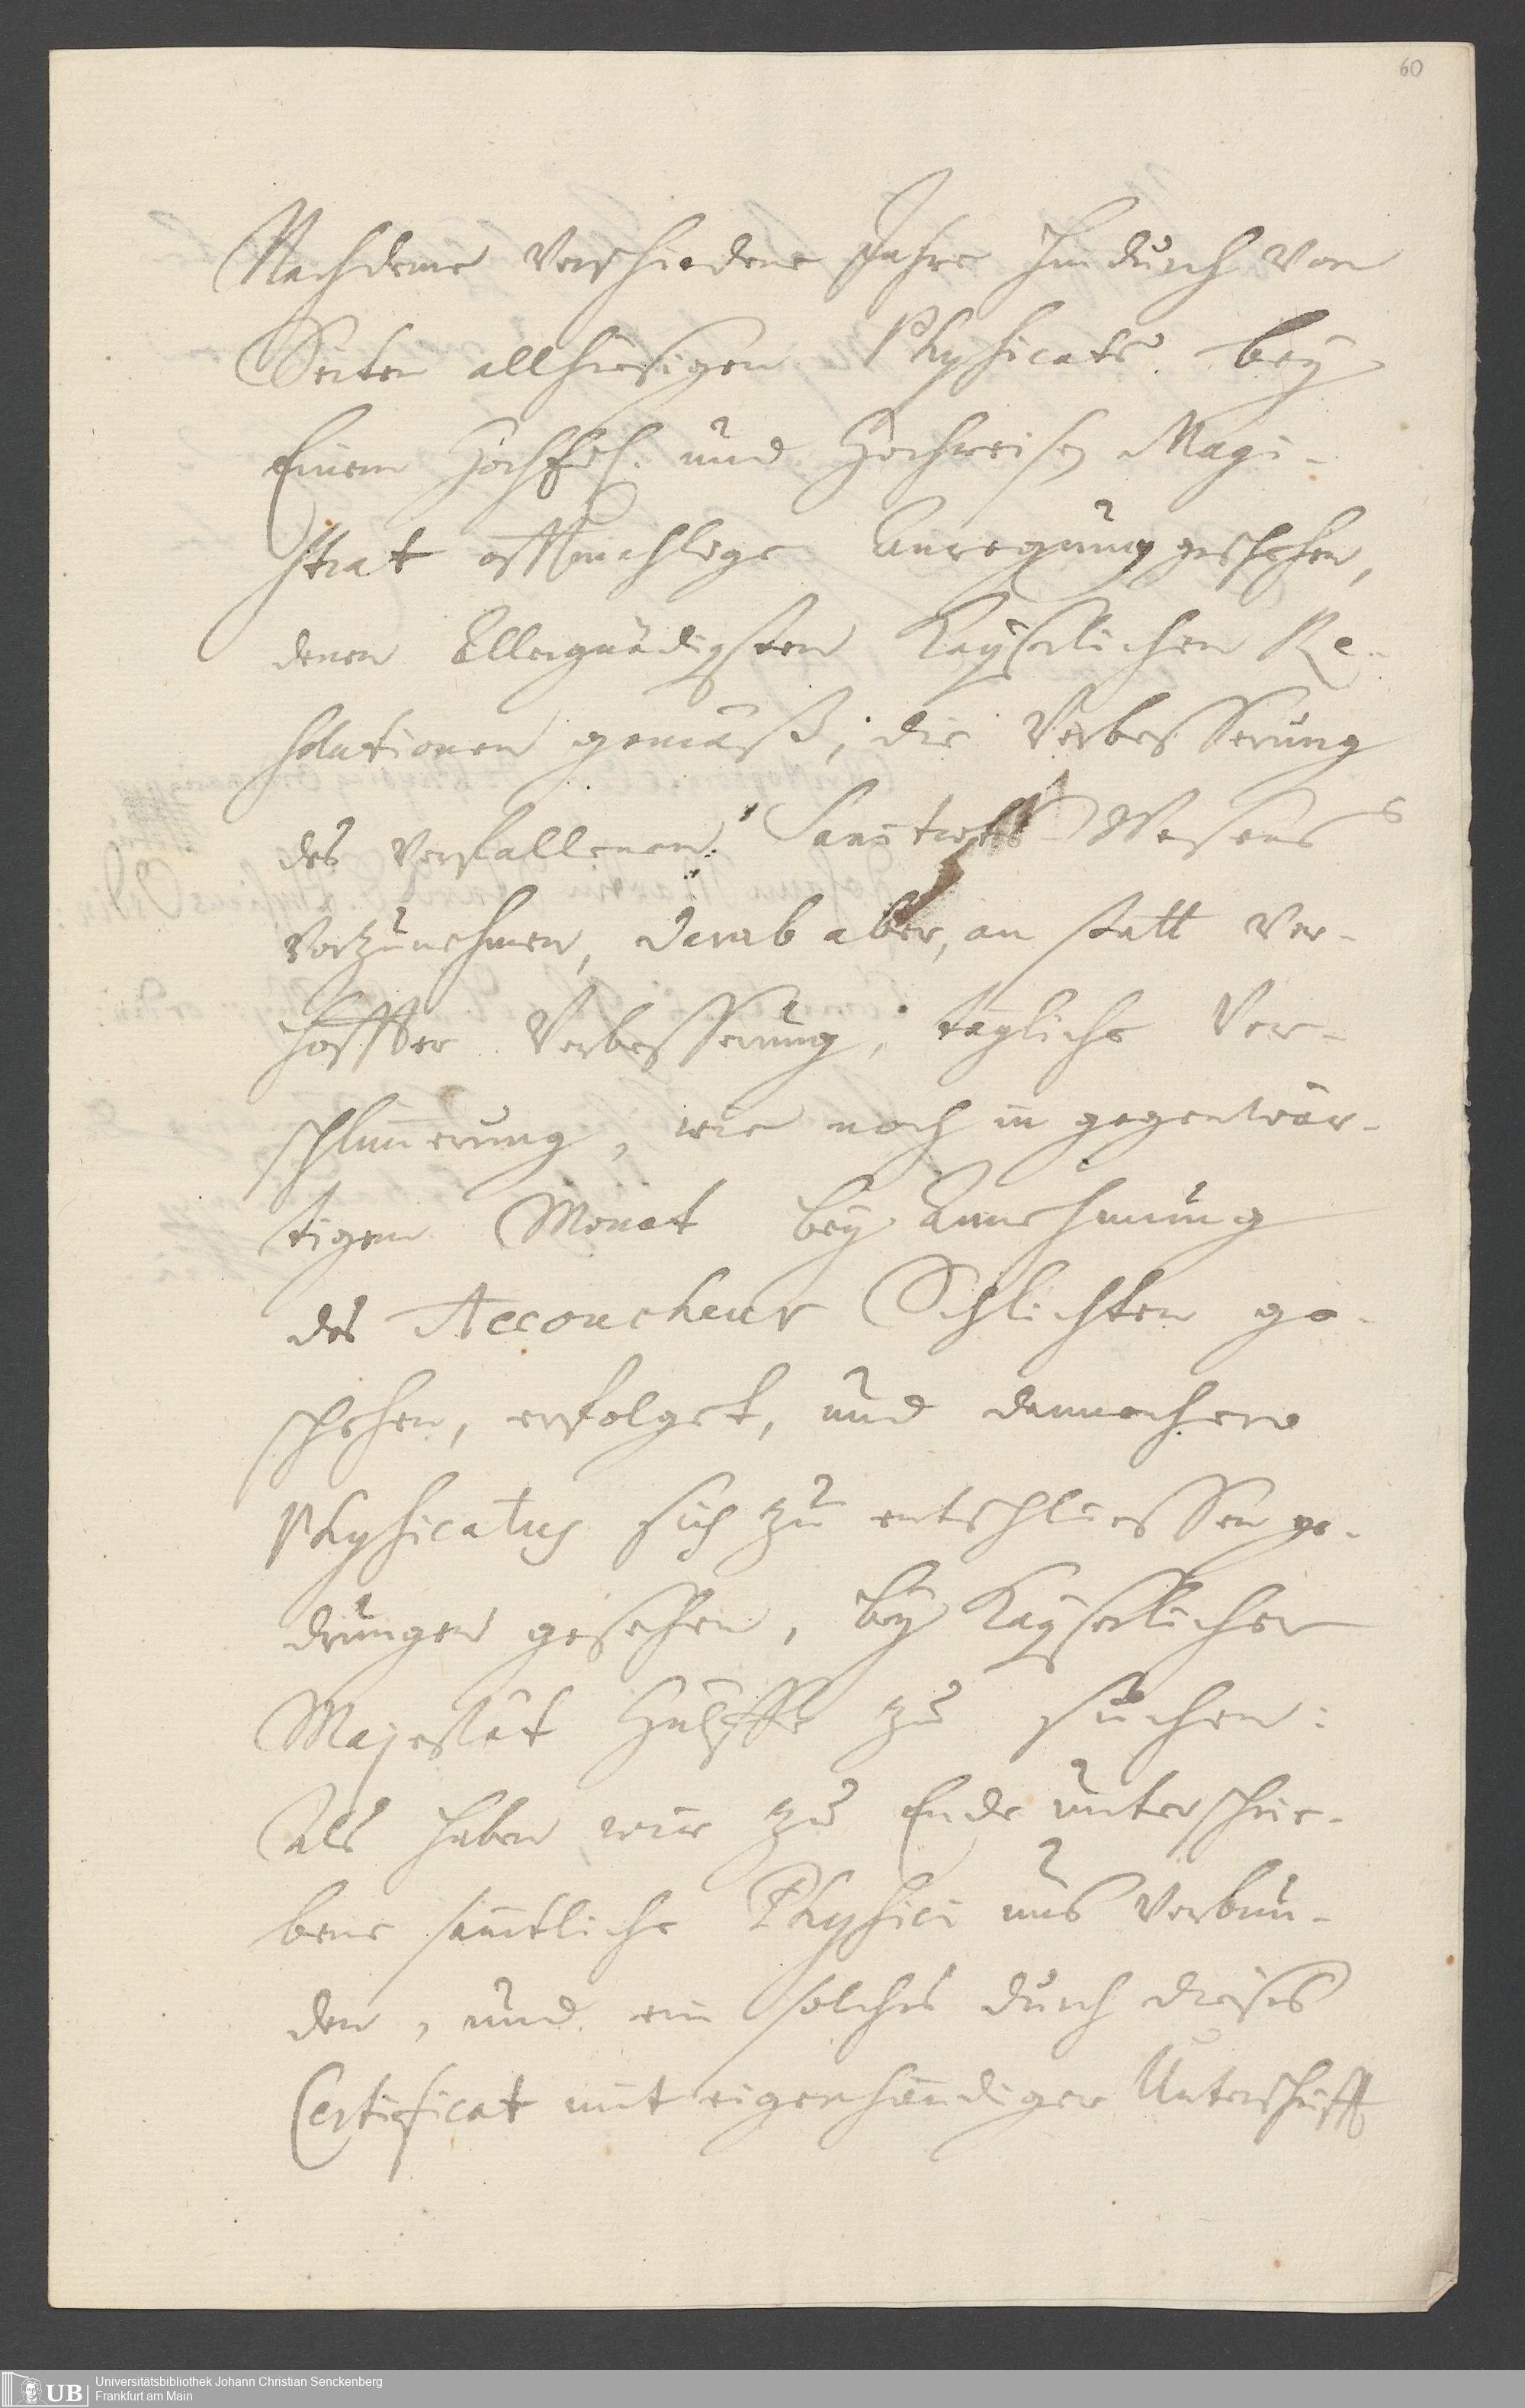 60
Nachdeme verschiedene Jahre hindurch von
Seiten allhiesigen Physicats bey
Einem HochEdl. und Hochweisen Magi-
strat öfftmahlige Anregung geschehen,
denen Allergnädigsten Kayserlichen Re-
solutionen gemäß, die Verbesserung
des verfallenen Sanitæts Wesens
vorzunehmen, darab aber, an statt ver-
hoffter Verbesserung, tägliche Ver-
schlimerung, wie noch in gegenwär-
tigem Monat bey Annehmung
des Accoucheur Schlichten ge-
schehen, erfolget, und dannenhero
Physicatus sich zu entschliessen ge-
drungen gesehen, bey Kayserlicher
Majestät Hülffe zu suchen:
Als haben wir zu Ende unterschrie-
bene sämtliche Physici uns verbun-
den, und ein solches durch dieses
Certificat mit eigenhändiger Unterschrifft
UB
Universitätsbibliothek Johann Christian Senckenberg
Frankfurt am Main